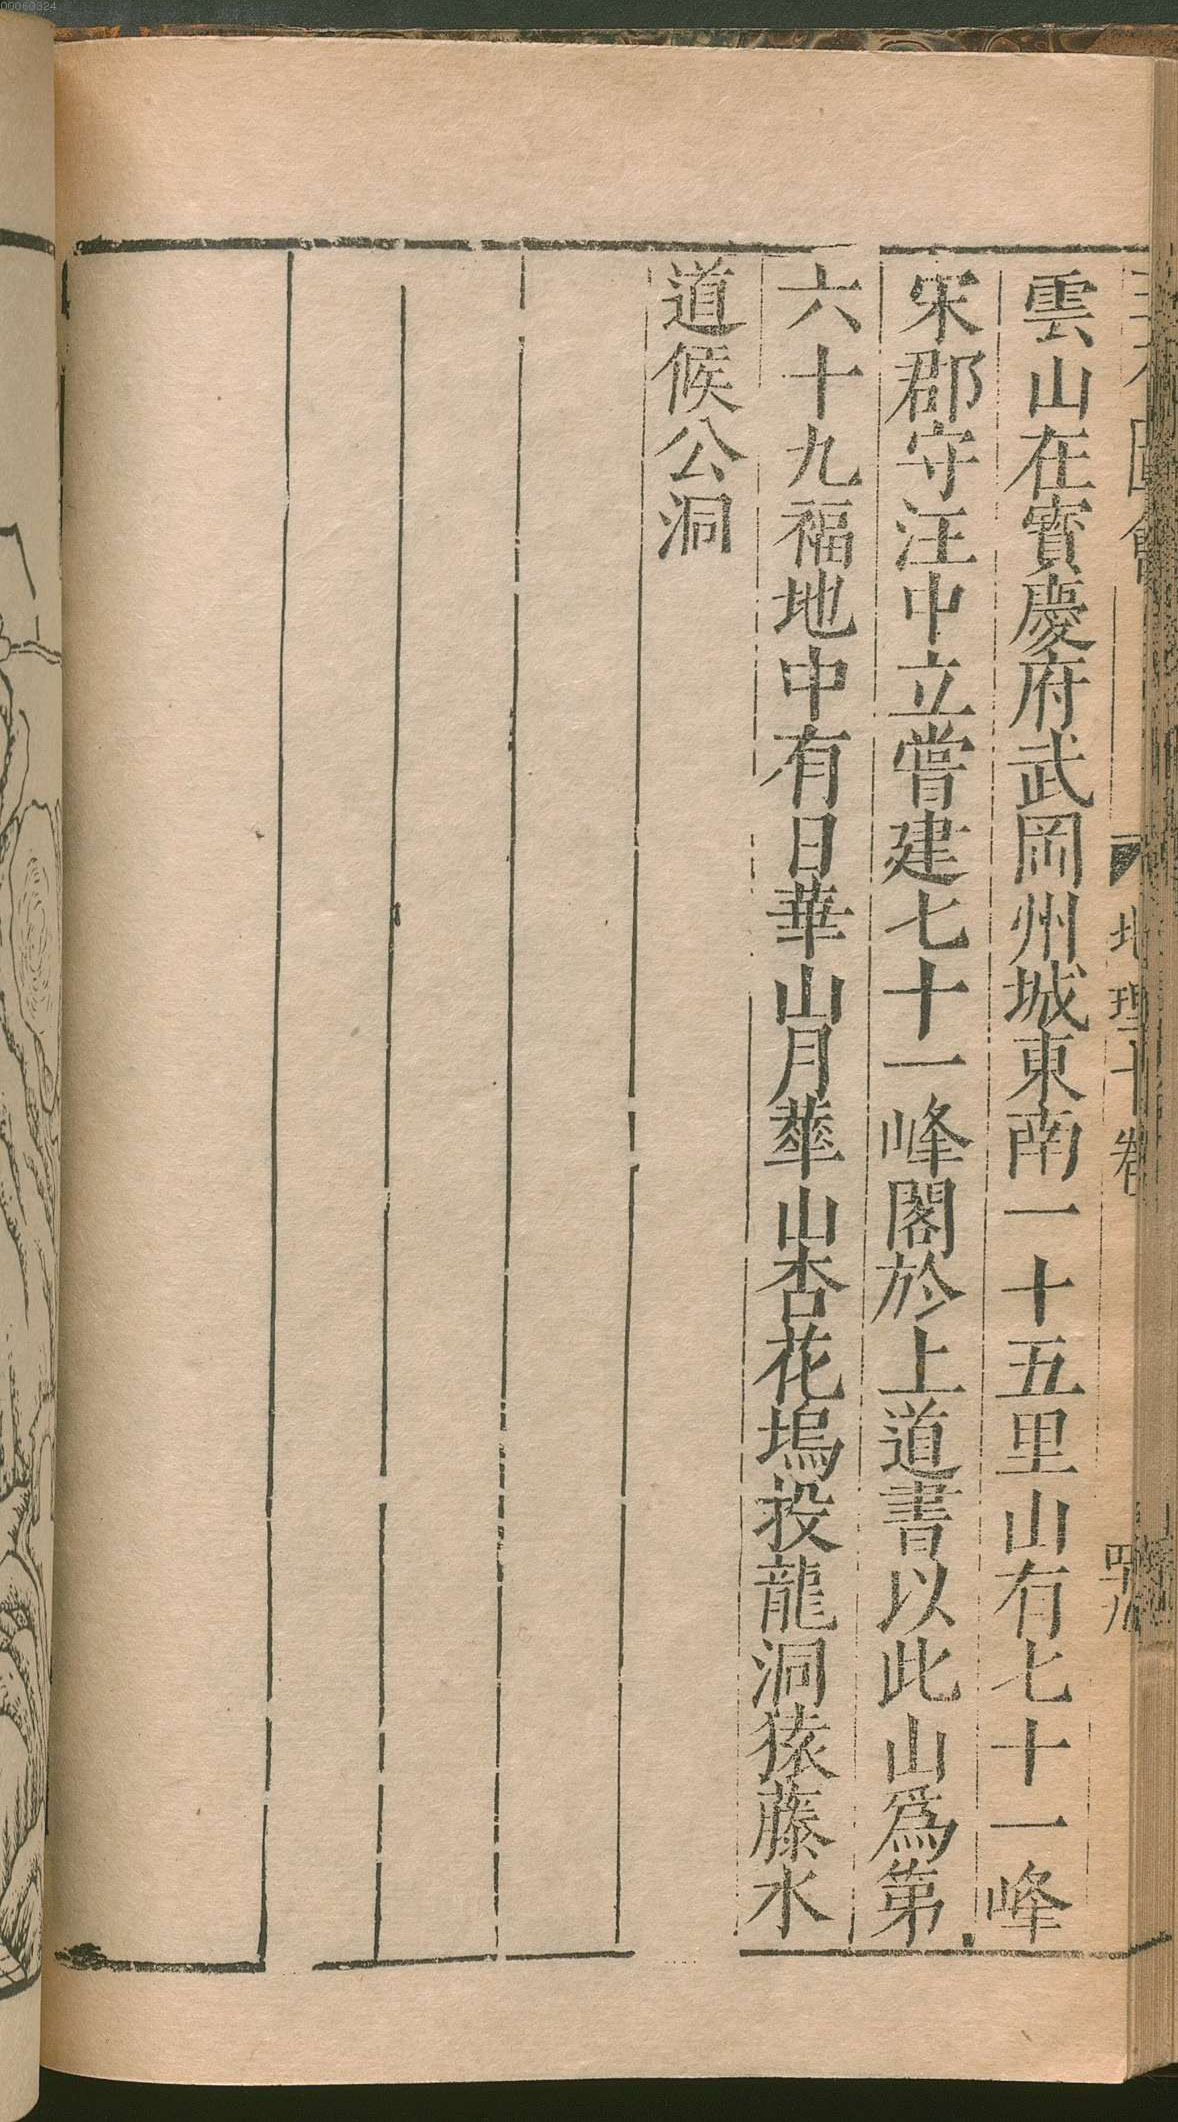 00060324
三才圖會 地理十卷 四十九
雲山在寳慶府武岡州城東南一十五里山有七十一峰
宋郡守汪中立嘗建七十一峰閣於上道書以此山爲第
六十九福地中有日華山月華山杏花塢投龍洞猿藤水
道侯公洞